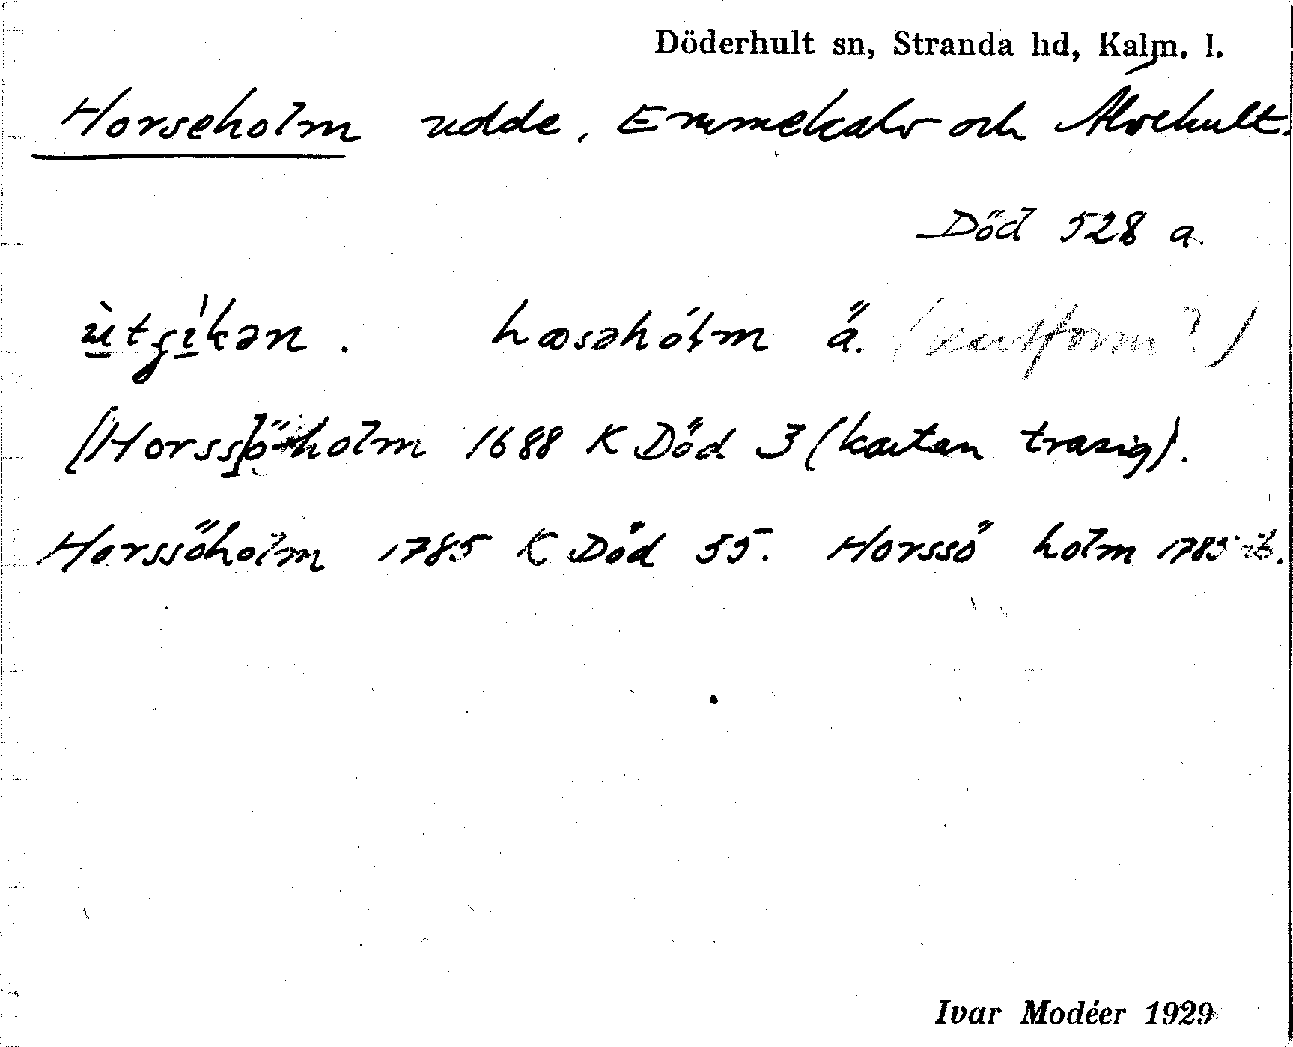 Döderhult sn, Stranda hd, Kalm. l.
Horseholm udde, Emmekalv och Älvehult.
Död 528 a.
hasəhólm ä. (kartform?)
[Horss]ö-holm 1688 K Död 3 (kartan trasig).
Horssöholm 1785 K Död 55. Horssö holm 1785 ib.
Ivar Modéer 1929